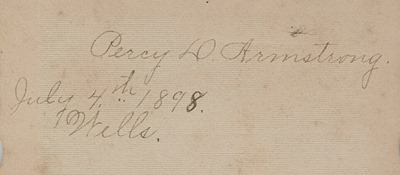 Percy D. Armstrong.
July 4.th 1898.
Wells.